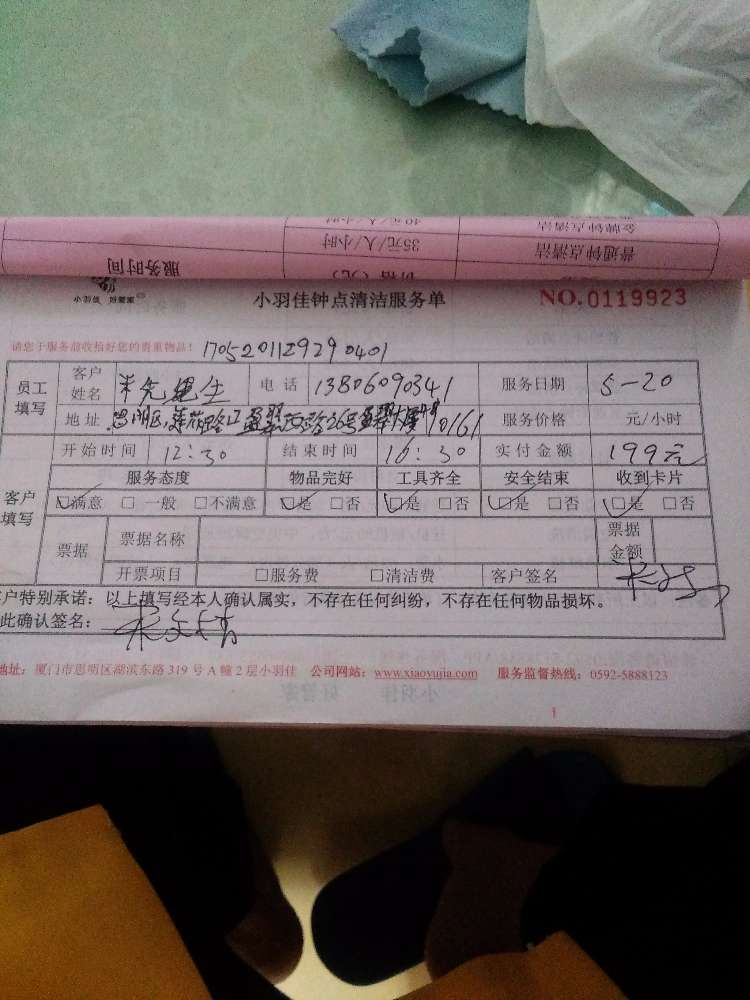 金牌钟点清洁 40元/人/小时
普通钟点清洁 35元/人/小时
价格(元) 服务时间
小羽佳 好管家 小羽佳钟点清洁服务单 NO.0119923
请您于服务前收拾好您的贵重物品! 1705201129290401
员工填写 客户姓名 先生 电话 13806090341 服务日期 5-20
地址 服务价格 元/小时
开始时间 12:30 结束时间 16:30 实付金额 199元
客户填写 服务态度 物品完好 工具齐全 安全结束 收到卡片
☑满意 □一般 □不满意 ☑是 □否 ☑是 □否 ☑是 □否 ☑是 □否
票据 票据名称 票据金额
开票项目 □服务费 □清洁费 客户签名
客户特别承诺:以上填写经本人确认属实,不存在任何纠纷,不存在任何物品损坏。
此确认签名:
地址:厦门市思明区湖滨东路319号A幢2层小羽佳 公司网站:www.xiaoyujia.com 服务监督热线:0592-5888123